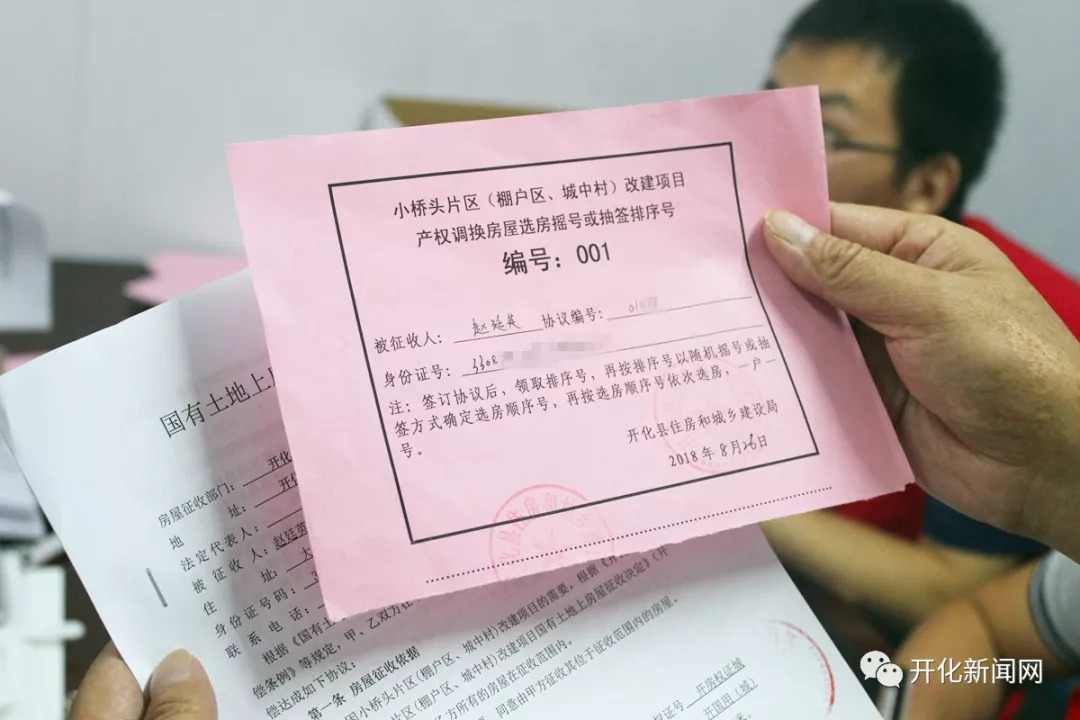 小桥头片区（棚户区、城中村）改建项目
产权调换房屋选房摇号或抽签排序号
编号：001
被征收人：赵廷英 协议编号：
身份证号：3308
注：签订协议后，领取排序号，再按排序号以随机摇号或抽
签方式确定选房顺序号，再按选房顺序号依次选房，一户一
号。
开化县住房和城乡建设局
2018年8月26日
国有土地上
房屋征收部门：开化
地 址：开化
法定代表人：
被征收人：赵廷英
住 址：大
身份证号码：3
联系电话：
根据《国有土
偿条例》等规定，甲、乙双方在
偿达成如下协议：
第一条 房屋征收依据
改建项目的需要，根据《开
因小桥头片区(棚户区、城中村)改建项目国有土地上房屋征收决定》(开
片区(棚户区、城中村)
乙方所有的房屋在征收范围内。
同意由甲方征收其位于征收范围内的房屋。
权证号 开房权证城
开国用（城）
开化新闻网